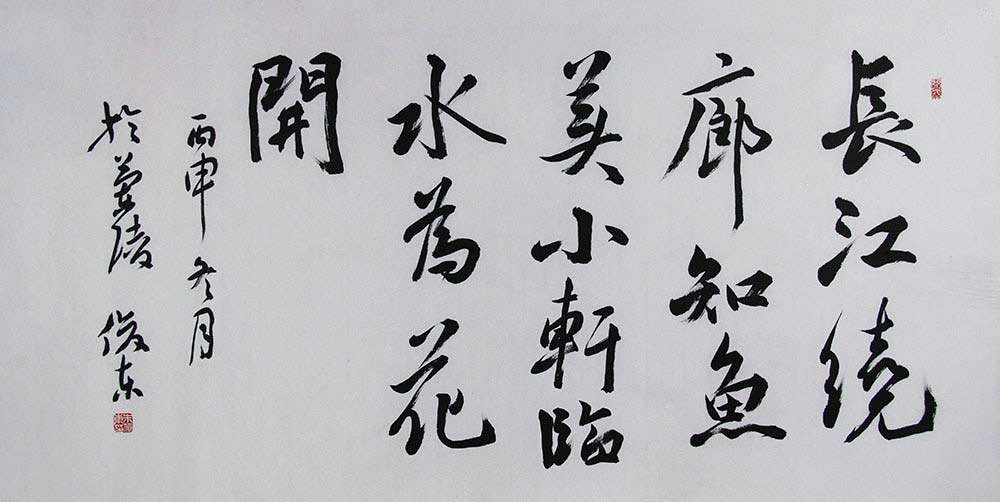 長江繞
廊知魚
美小軒臨
水為花
開
丙申冬月
於蘭陵 俊东